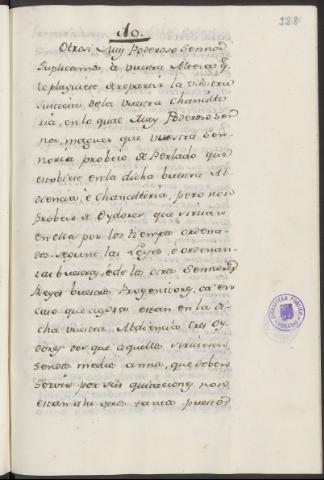 10.
328
Otrosi Muy Poderoso Sennor
Suplicamos à vuestra Alteza q.
le plega de reparar la vuestra
Justicia de la vuestra Chancille
ria, en lo qual Muy Poderoso Sen
nor, maguer que vuestra Sen
noria probeió de Perlado que
estobiese en la dicha vuestra Ab
diencia, è Chancilleria, pero non
probeió de Oydores que sirvan
en ella por los tiempos ordena
dos, segunt las Leyes, è ordenan
zas vuestras, è de los otros Sennores
Reyes vuestros Progenitores, ca en
caso que agora estan en la di
cha vuestra Abdiencia tres Oy
dores des que aquellos sirvieren
sendos medios annos, que deben
servir por sus quitaciones non
estan ahi otros tantos puestos
BIBLIOTECA PUBLICA
TOLEDO